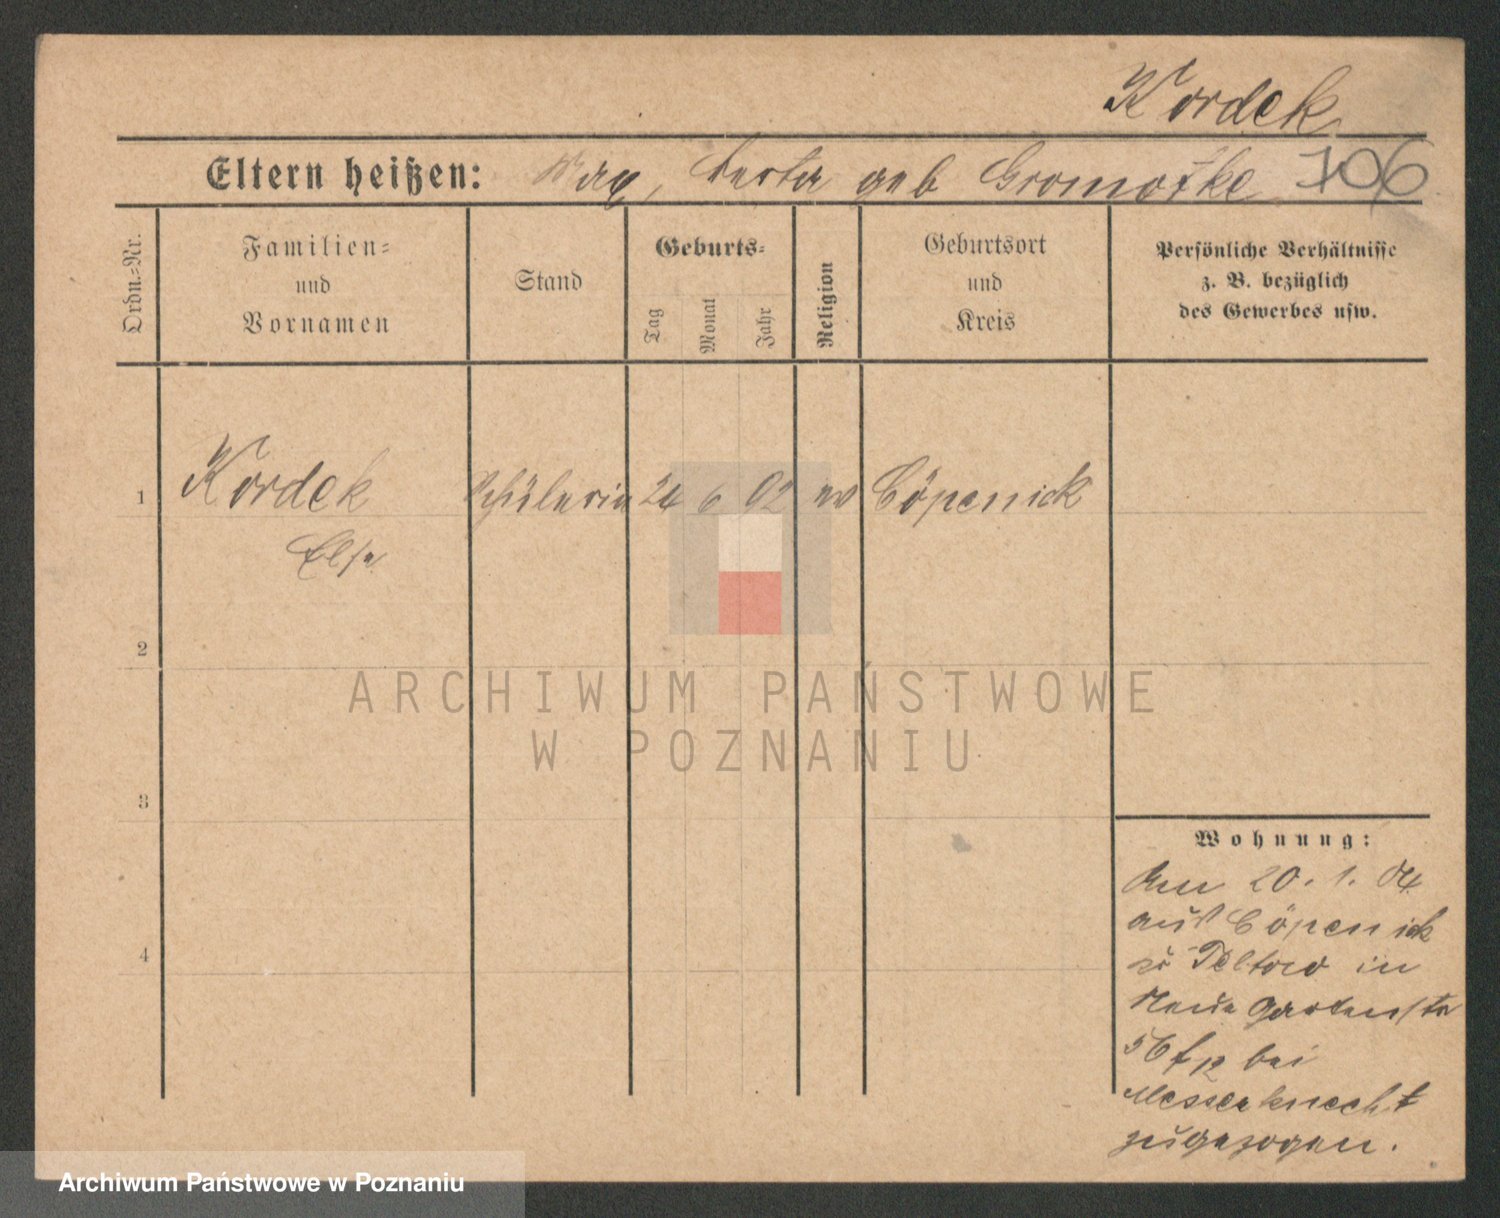 Kordek
Eltern heißen: Max, Berta geb Gromotke 106
Ordn.=Nr.
Familien=
und
Vornamen
Stand
Geburts=
Tag
Monat
Jahr
Religion
Geburtsort
und
Kreis
Persönliche Verhältnisse
z. B. bezüglich
des Gewerbes usw.
1 Kordek Schülerin 24 6 92 ev Cöpenick
Else
2
3
4
Wohnung:
Am 20. 1. 04
aus Cöpenick
Teltow in
Neue Gartenstr
56 bei
Messerknecht
zugezogen.
ARCHIWUM PAŃSTWOWE
W POZNANIU
Archiwum Państwowe w Poznaniu